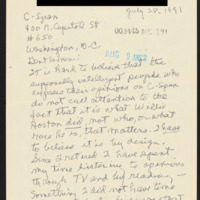 July 28, 1991
C-Span
400 N. Capitol St
#650
Washington, D.C.
AUG 2 1991
Dear Where:
It is hard to believe that the
supposedly intelligent people who
express their opinions on C-Span
do not call attention to the
fact that it is what Willie
Horton did, not who, or what
race he is, that matters. I have
to believe it is by design.
Since I retired I have spent
my time listening to opinions
through TV and by reading —
Something I did not have time